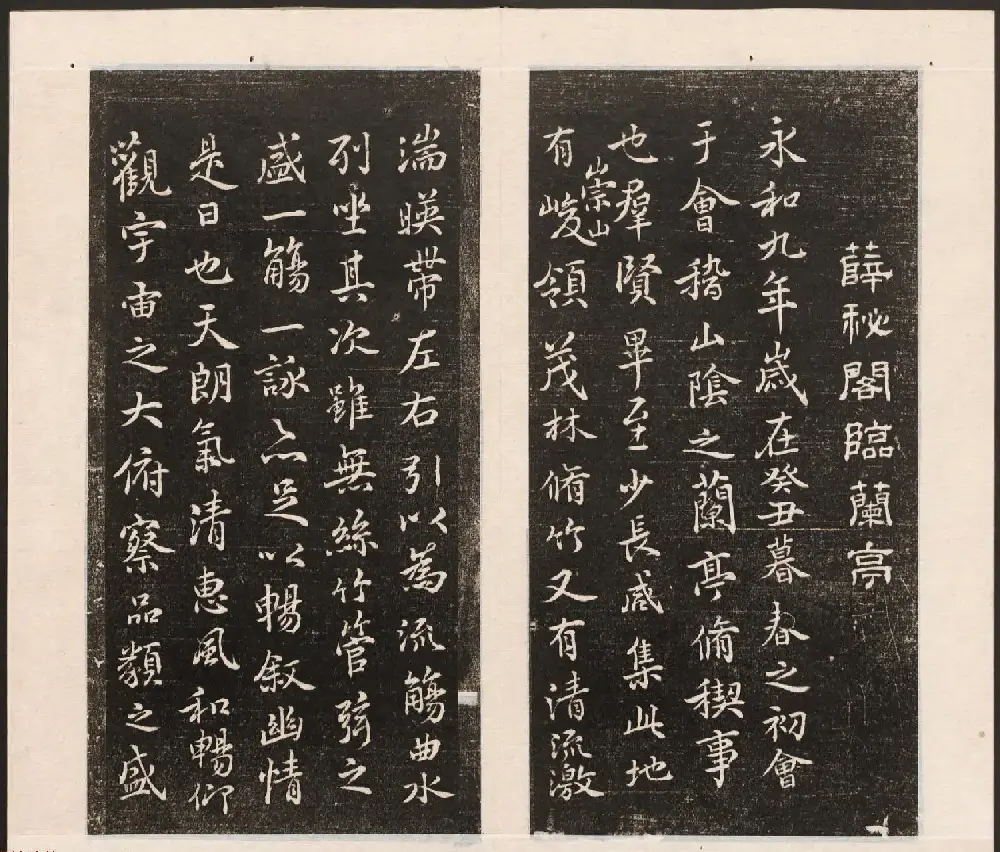 薛秘閣臨蘭亭
永和九年歲在癸丑暮春之初會
于會稽山陰之蘭亭脩稧事
也羣賢畢至少長咸集此地
有崇山峻領茂林脩竹又有清流激
湍暎帶左右引以為流觴曲水
列坐其次雖無絲竹管弦之
盛一觴一詠亦足以暢叙幽情
是日也天朗氣清惠風和暢仰
觀宇宙之大俯察品類之盛